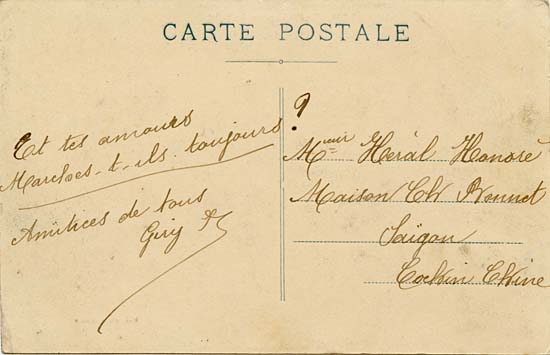 CARTE POSTALE
Et tes amours
Marches-t-ils toujours ?
Amitiées de tous
Giry
Mr Héral Honoré
Maison Ch Bonnet
Saïgon
Cochin Chine